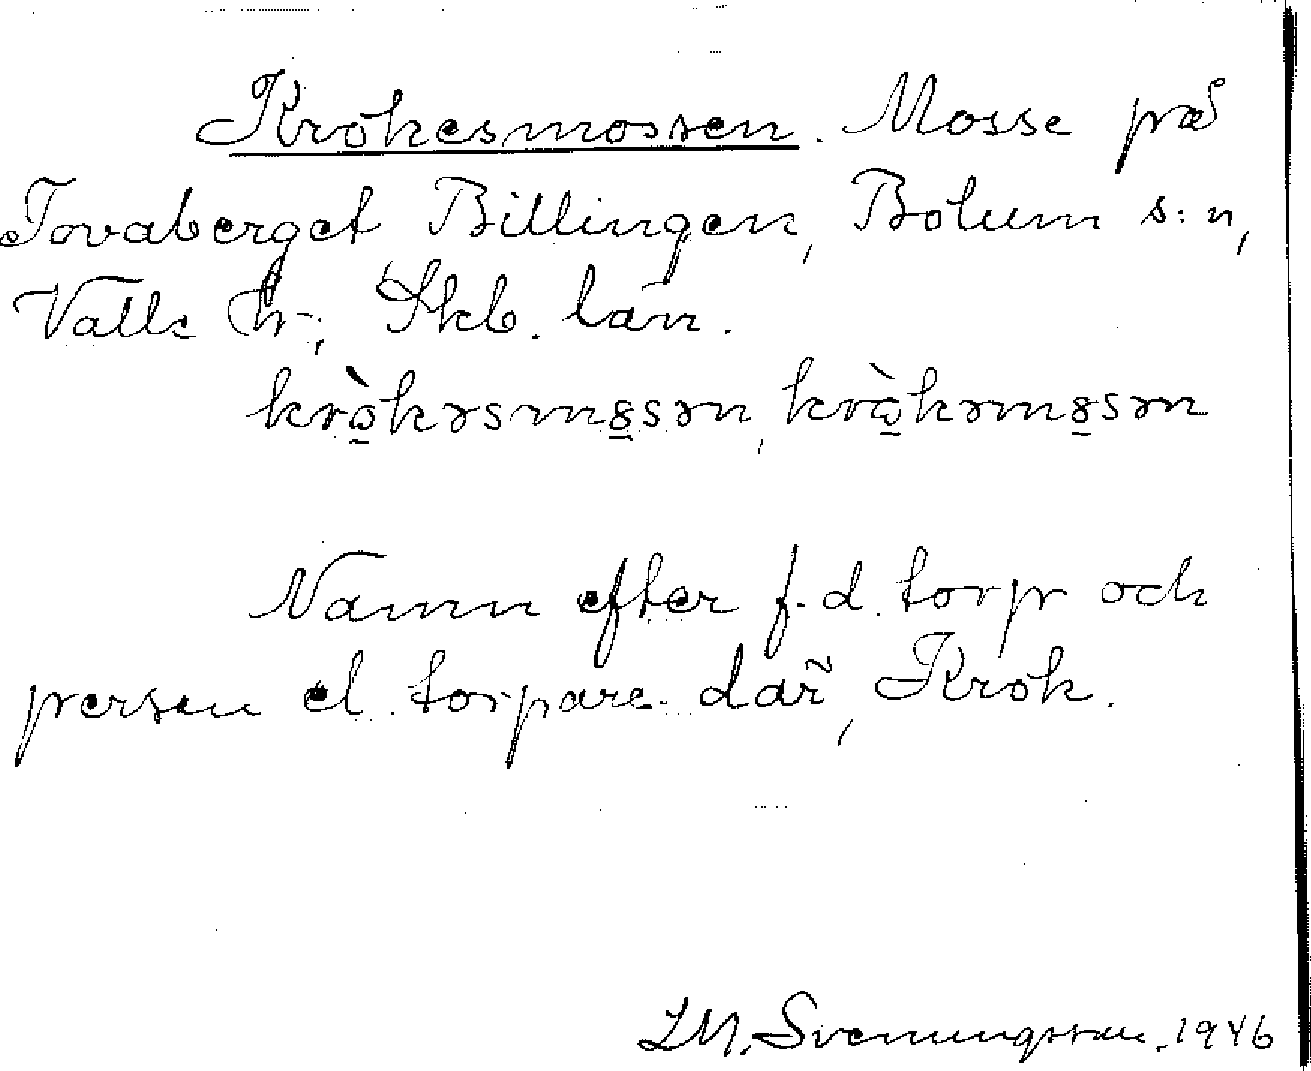 Krokesmossen. Mosse på
Tovaberget Billingen, Bolum s:n,
Valle hr, Skb. län.
krò̱kəsmo̱sən, krò̱kəmo̱sən
Namn efter f.d. torp och
person el. torpare där, Krok.
LM. Svenungsson. 1946